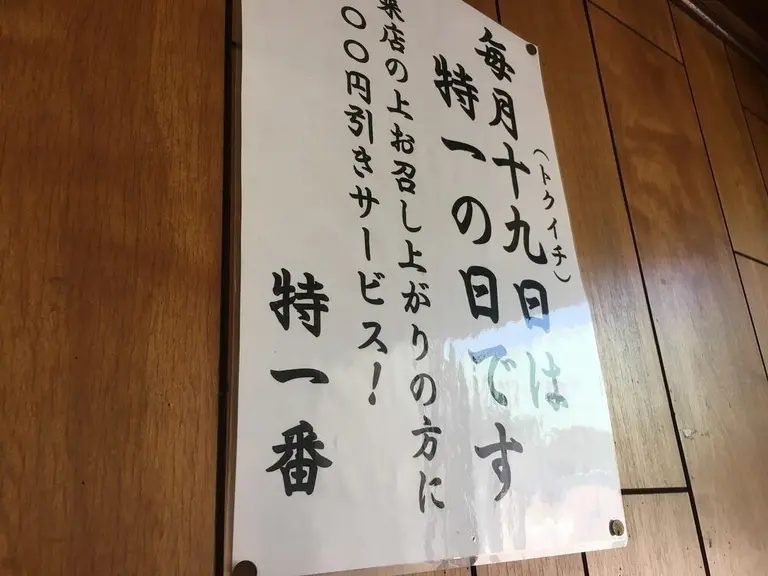 毎月十九日は
(トクイチ)
特一の日です
来店の上お召し上がりの方に
〇〇円引きサービス!
特一番